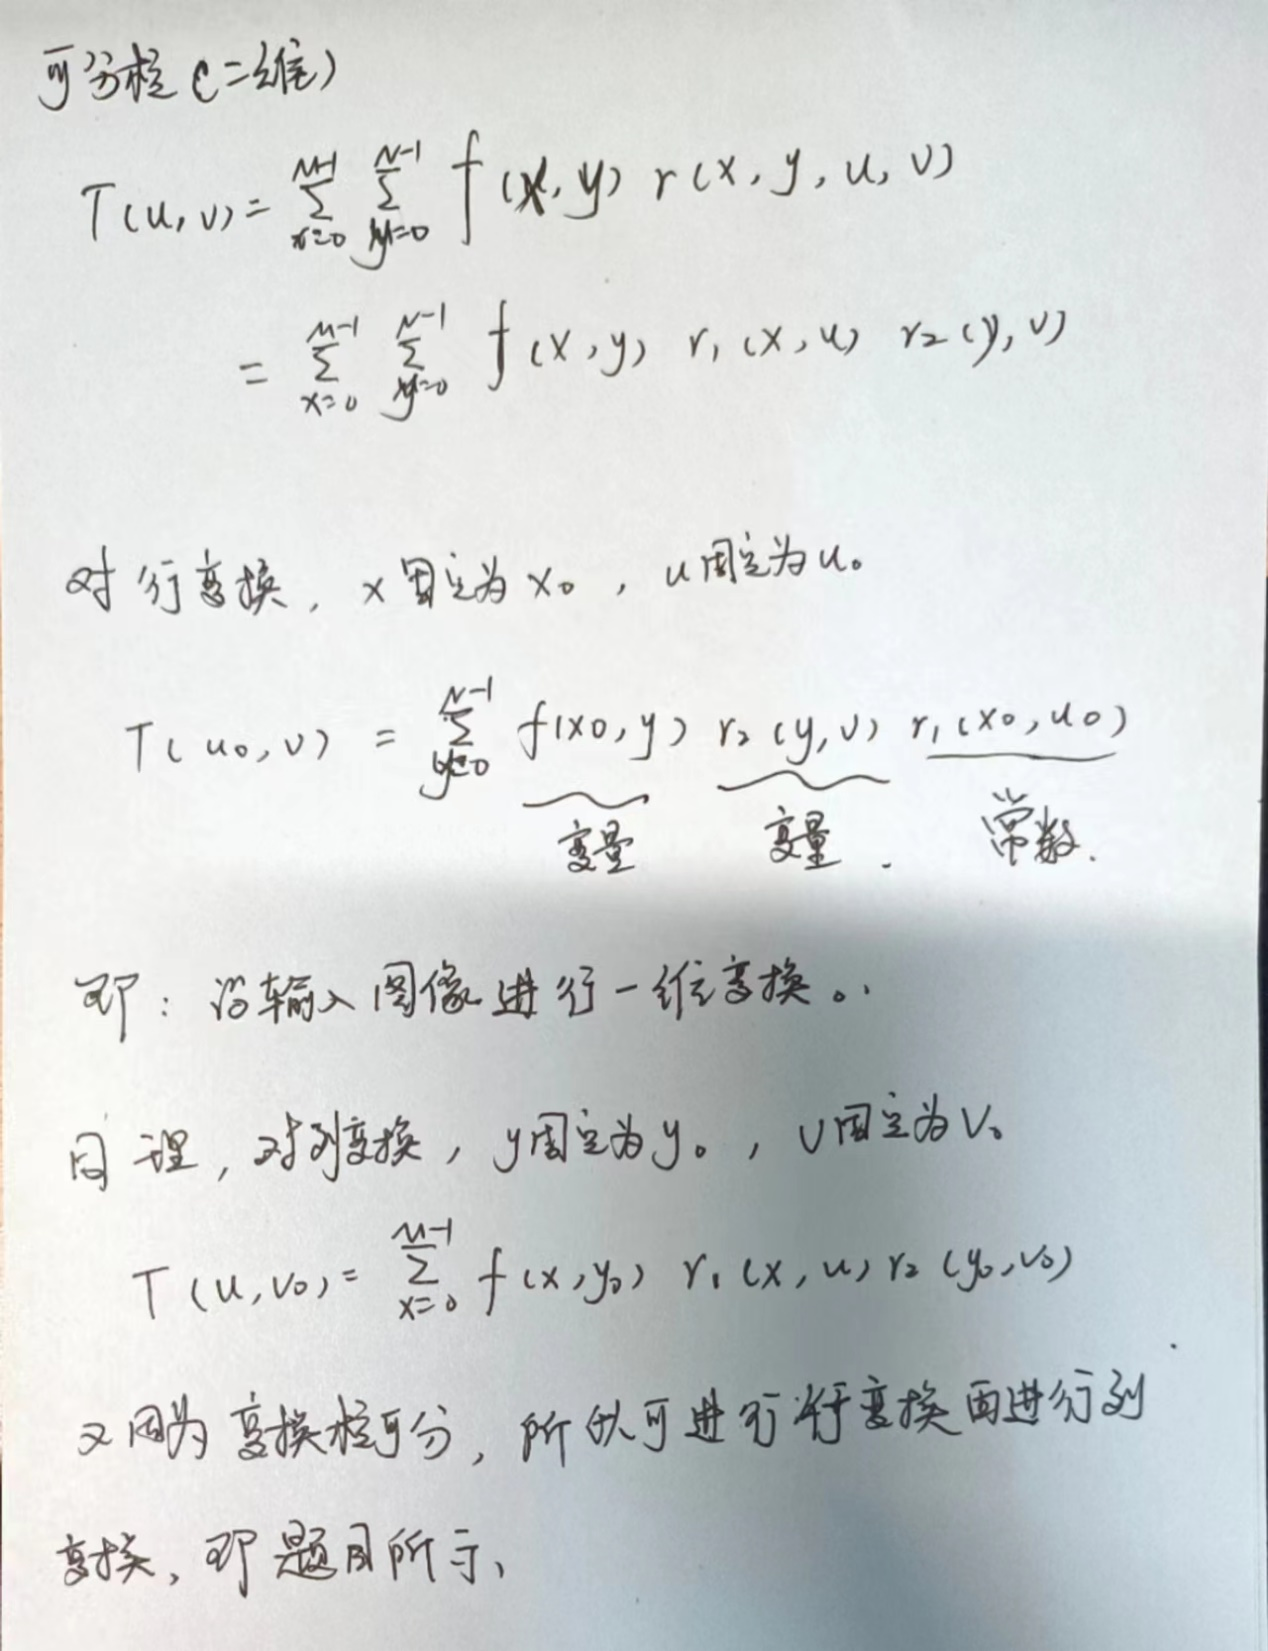 可分核（二维）
T(u,v)= \sum_{x=0}^{M-1} \sum_{y=0}^{N-1} f(x,y) r(x,y,u,v)
= \sum_{x=0}^{M-1} \sum_{y=0}^{N-1} f(x,y) r₁(x,u) r₂(y,v)
对行变换，x固定为x₀，u固定为u₀
T(u₀,v) = \sum_{y=0}^{N-1} f(x₀,y) r₂(y,v) r₁(x₀,u₀)
变量 变量. 常数.
即：沿输入图像进行一维变换。
同理，对列变换，y固定为y₀，v固定为v₀
T(u,v₀)= \sum_{x=0}^{M-1} f(x,y₀) r₁(x,u) r₂(y₀,v₀)
又因为变换核可分，所以可进行行变换再进行列
变换，即题目所示、